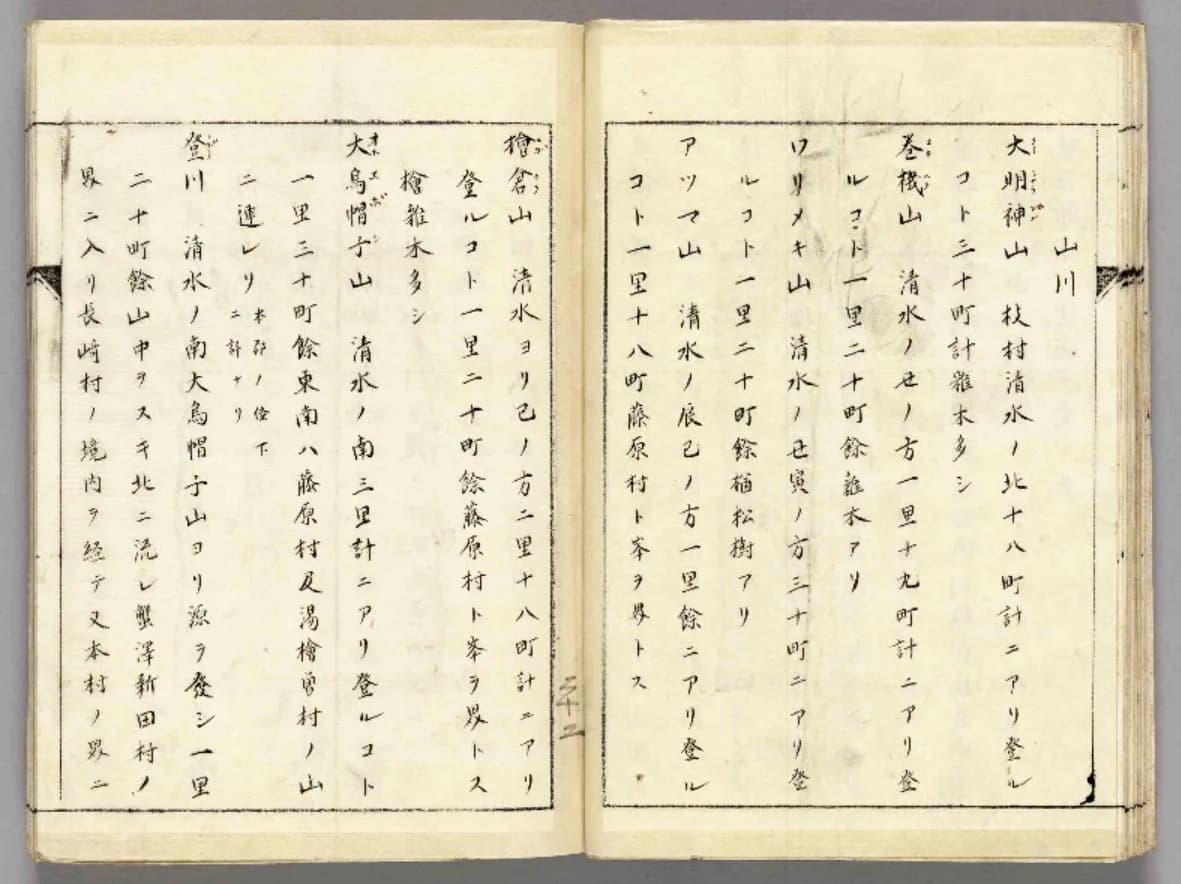 山川
大明神山 枝村清水ノ北十八町計ニアリ登ル
コト三十町計雜木多シ
巻機山 清水ノ丑ノ方一里十九町計ニアリ登
ルコト一里二十町餘雜木アリ
ワリメキ山 清水ノ丑寅ノ方三十町ニアリ登
ルコト一里二十町餘植松樹アリ
アツマ山 清水ノ辰巳ノ方一里餘ニアリ登ル
コト一里十八町藤原村ト峯ヲ界トス
檜倉山 清水ヨリ巳ノ方二里十八町計ニアリ
登ルコト一里二十町餘藤原村ト峯ヲ界トス
檜雜木多シ
大烏帽子山 清水ノ南三里計ニアリ登ルコト
一里三十町餘東南ハ藤原村及湯檜曽村ノ山
ニ連レリ 本郡ノ條下
ニ詳ナリ
登川 清水ノ南大烏帽子山ヨリ源ヲ發シ一里
二十町餘山中ヲスキ北ニ流レ蟹澤新田村ノ
界ニ入リ長崎村ノ境内ヲ経テ又本村ノ界ニ